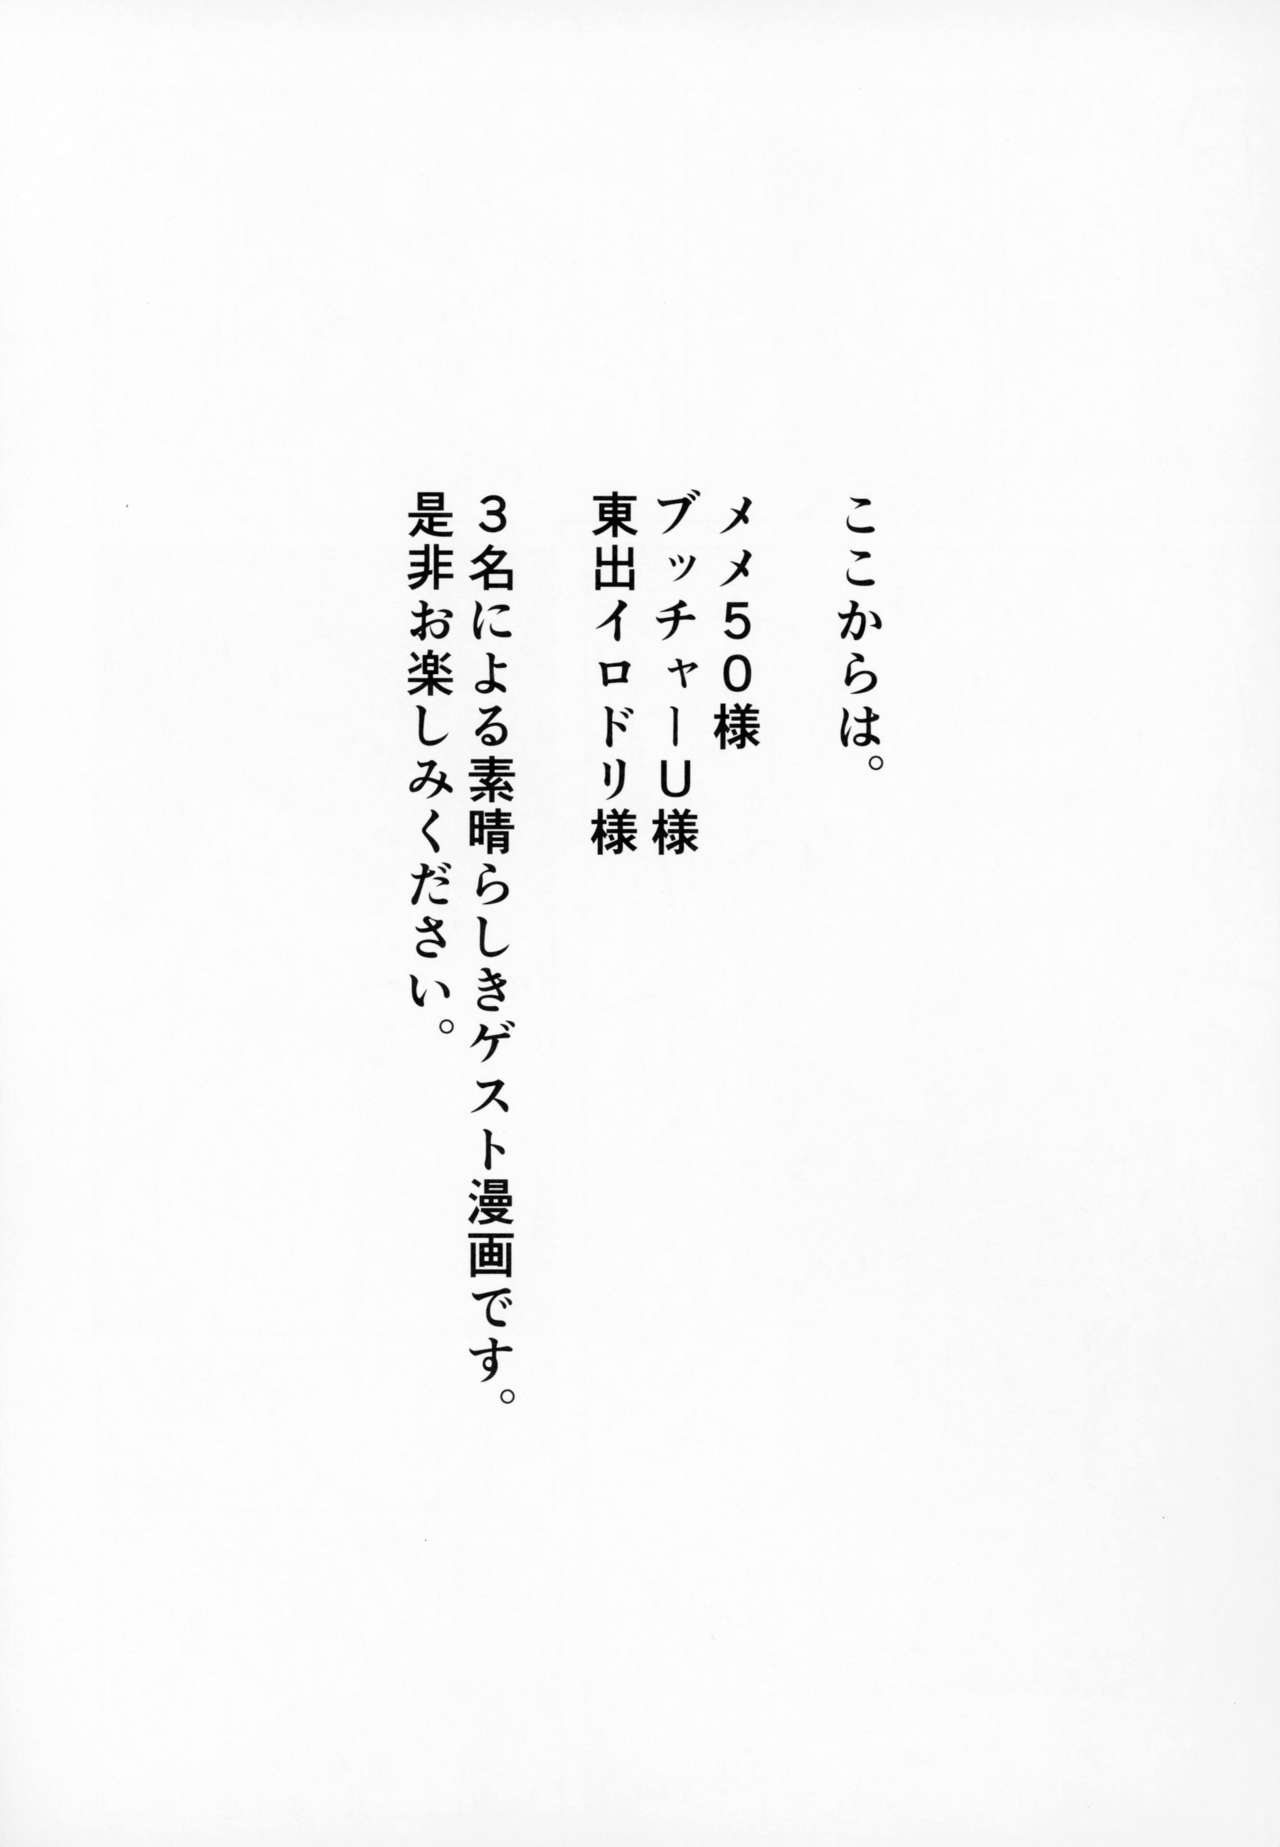 ここからは。
メメ５０様
ブッチャーＵ様
東出イロドリ様
３名による素晴らしきゲスト漫画です。
是非お楽しみください。